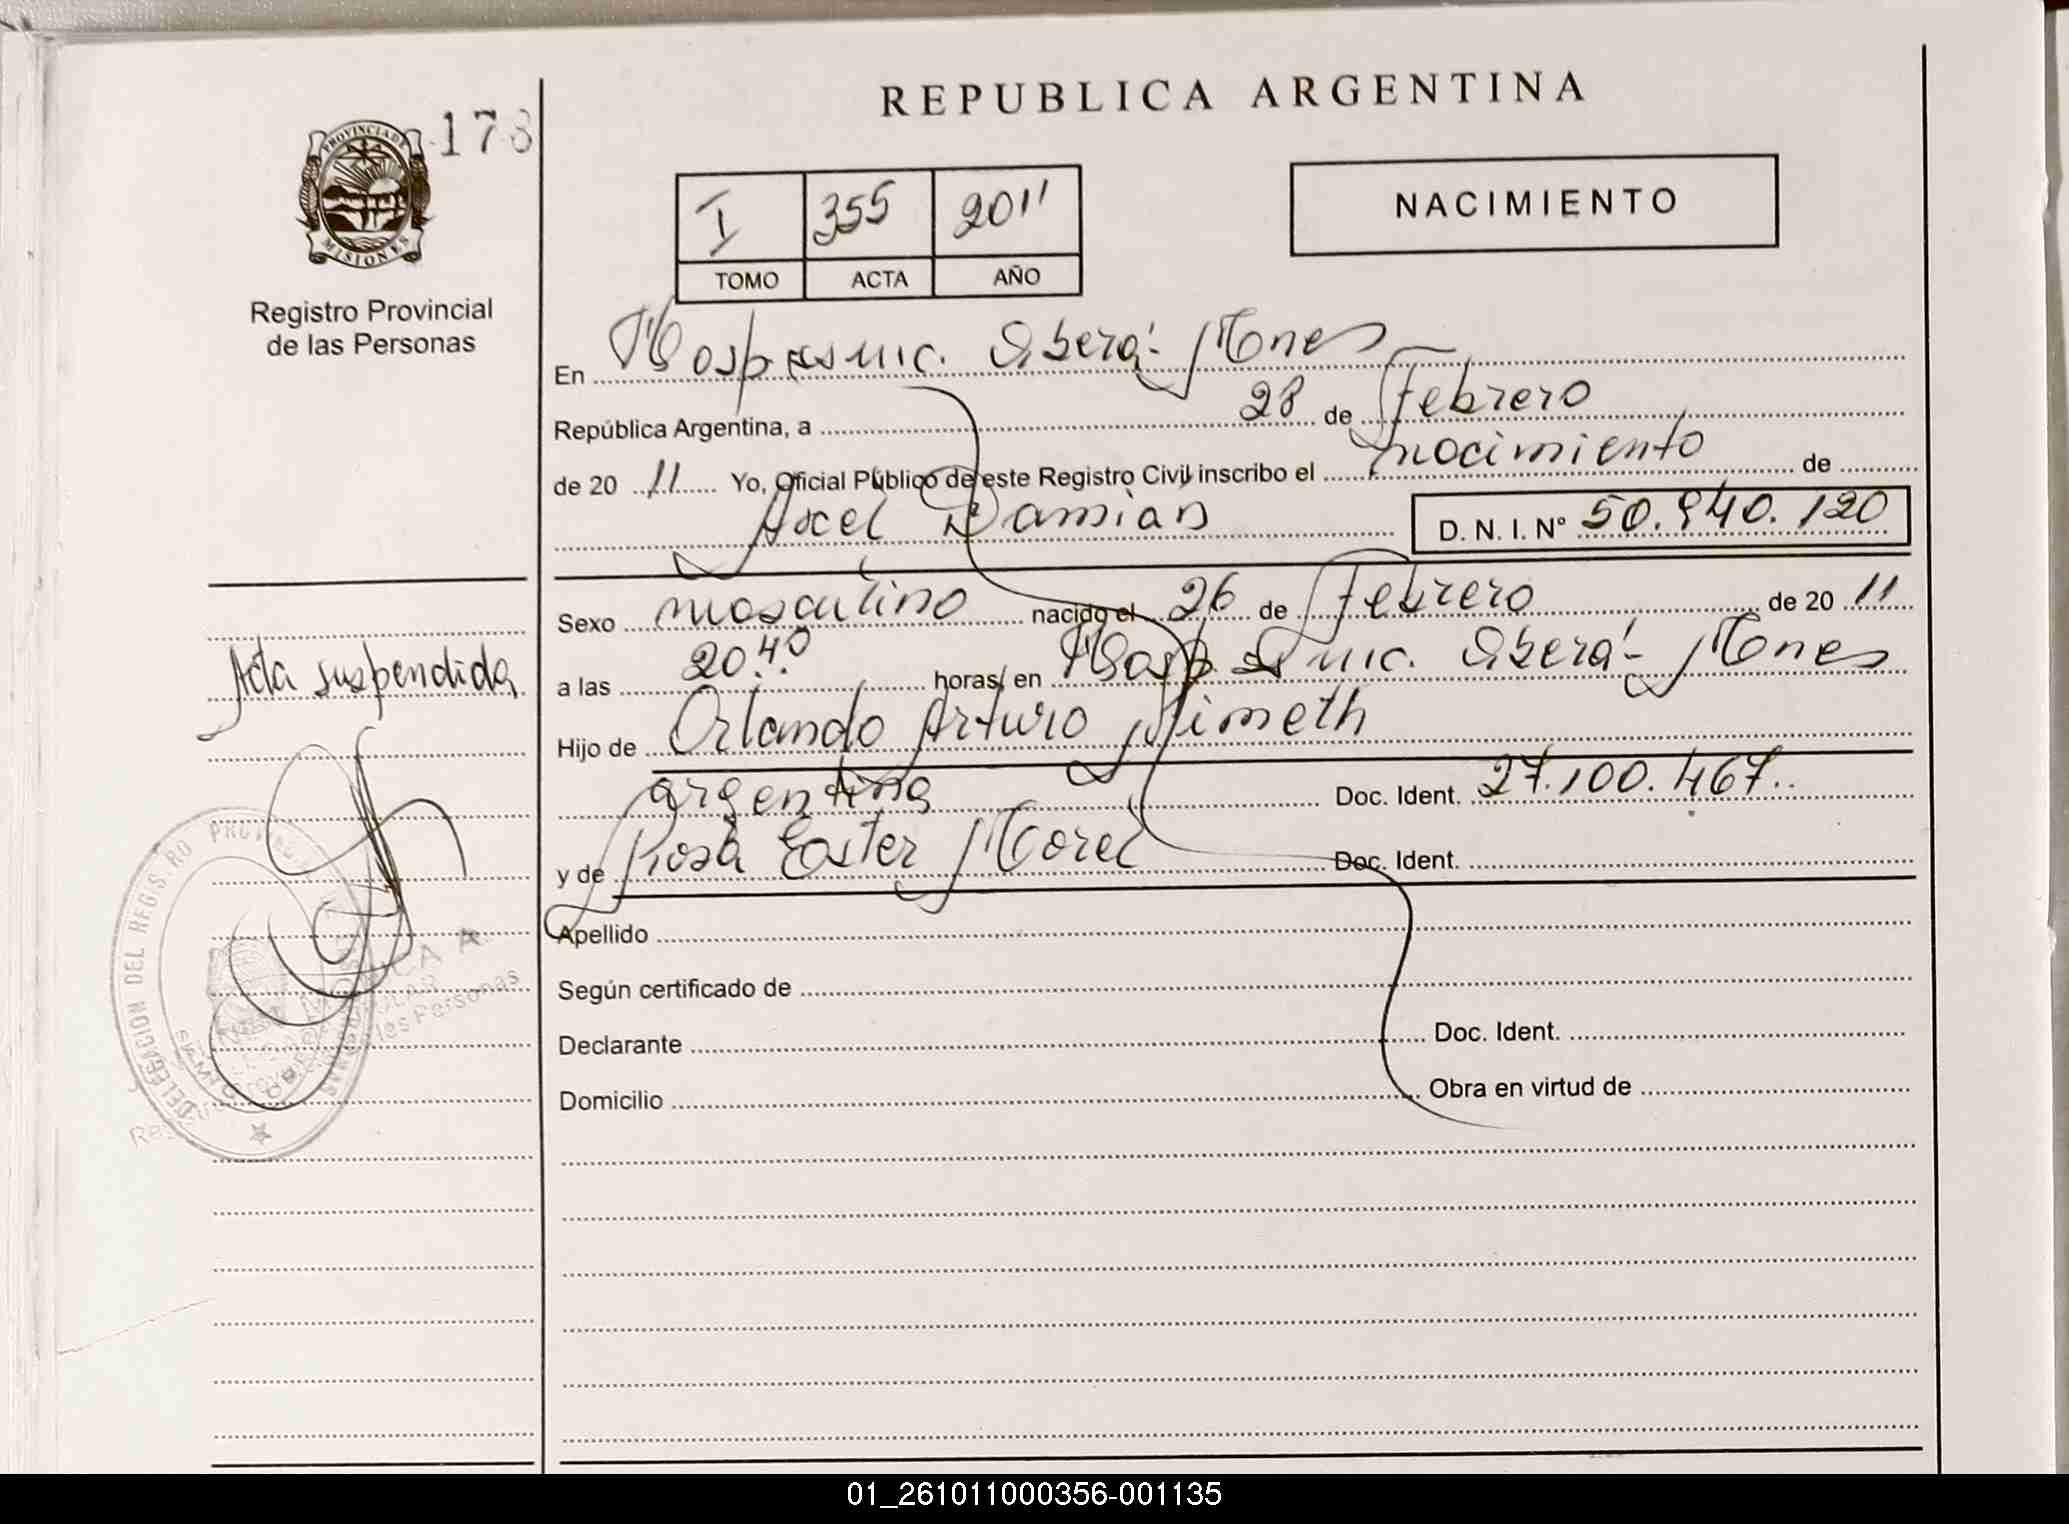 REPUBLICA ARGENTINA
178
PROVINCIA DE
MISIONES
Registro Provincial
de las Personas
I 355 2011
TOMO ACTA AÑO
NACIMIENTO
En Hosp. SSMIC. Oberá - Mnes
República Argentina, a 28 de Febrero
de 20 11 Yo, Oficial Público de este Registro Civil inscribo el nacimiento de
Axcel Damián D. N. I. Nº 50.940.120
Sexo masculino nacido el 26 de Febrero de 20 11
a las 20.40 horas, en Hosp. SSMIC. Oberá - Mnes
Hijo de Orlando Arturo Nimeth
argentina Doc. Ident. 27.100.467..
y de Rosa Ester Morel Doc. Ident.
Apellido
Según certificado de
Declarante Doc. Ident.
Domicilio Obra en virtud de
Acta suspendida
DELEGACION DEL REGISTRO PROVINCIAL
las Personas
01_261011000356-001135